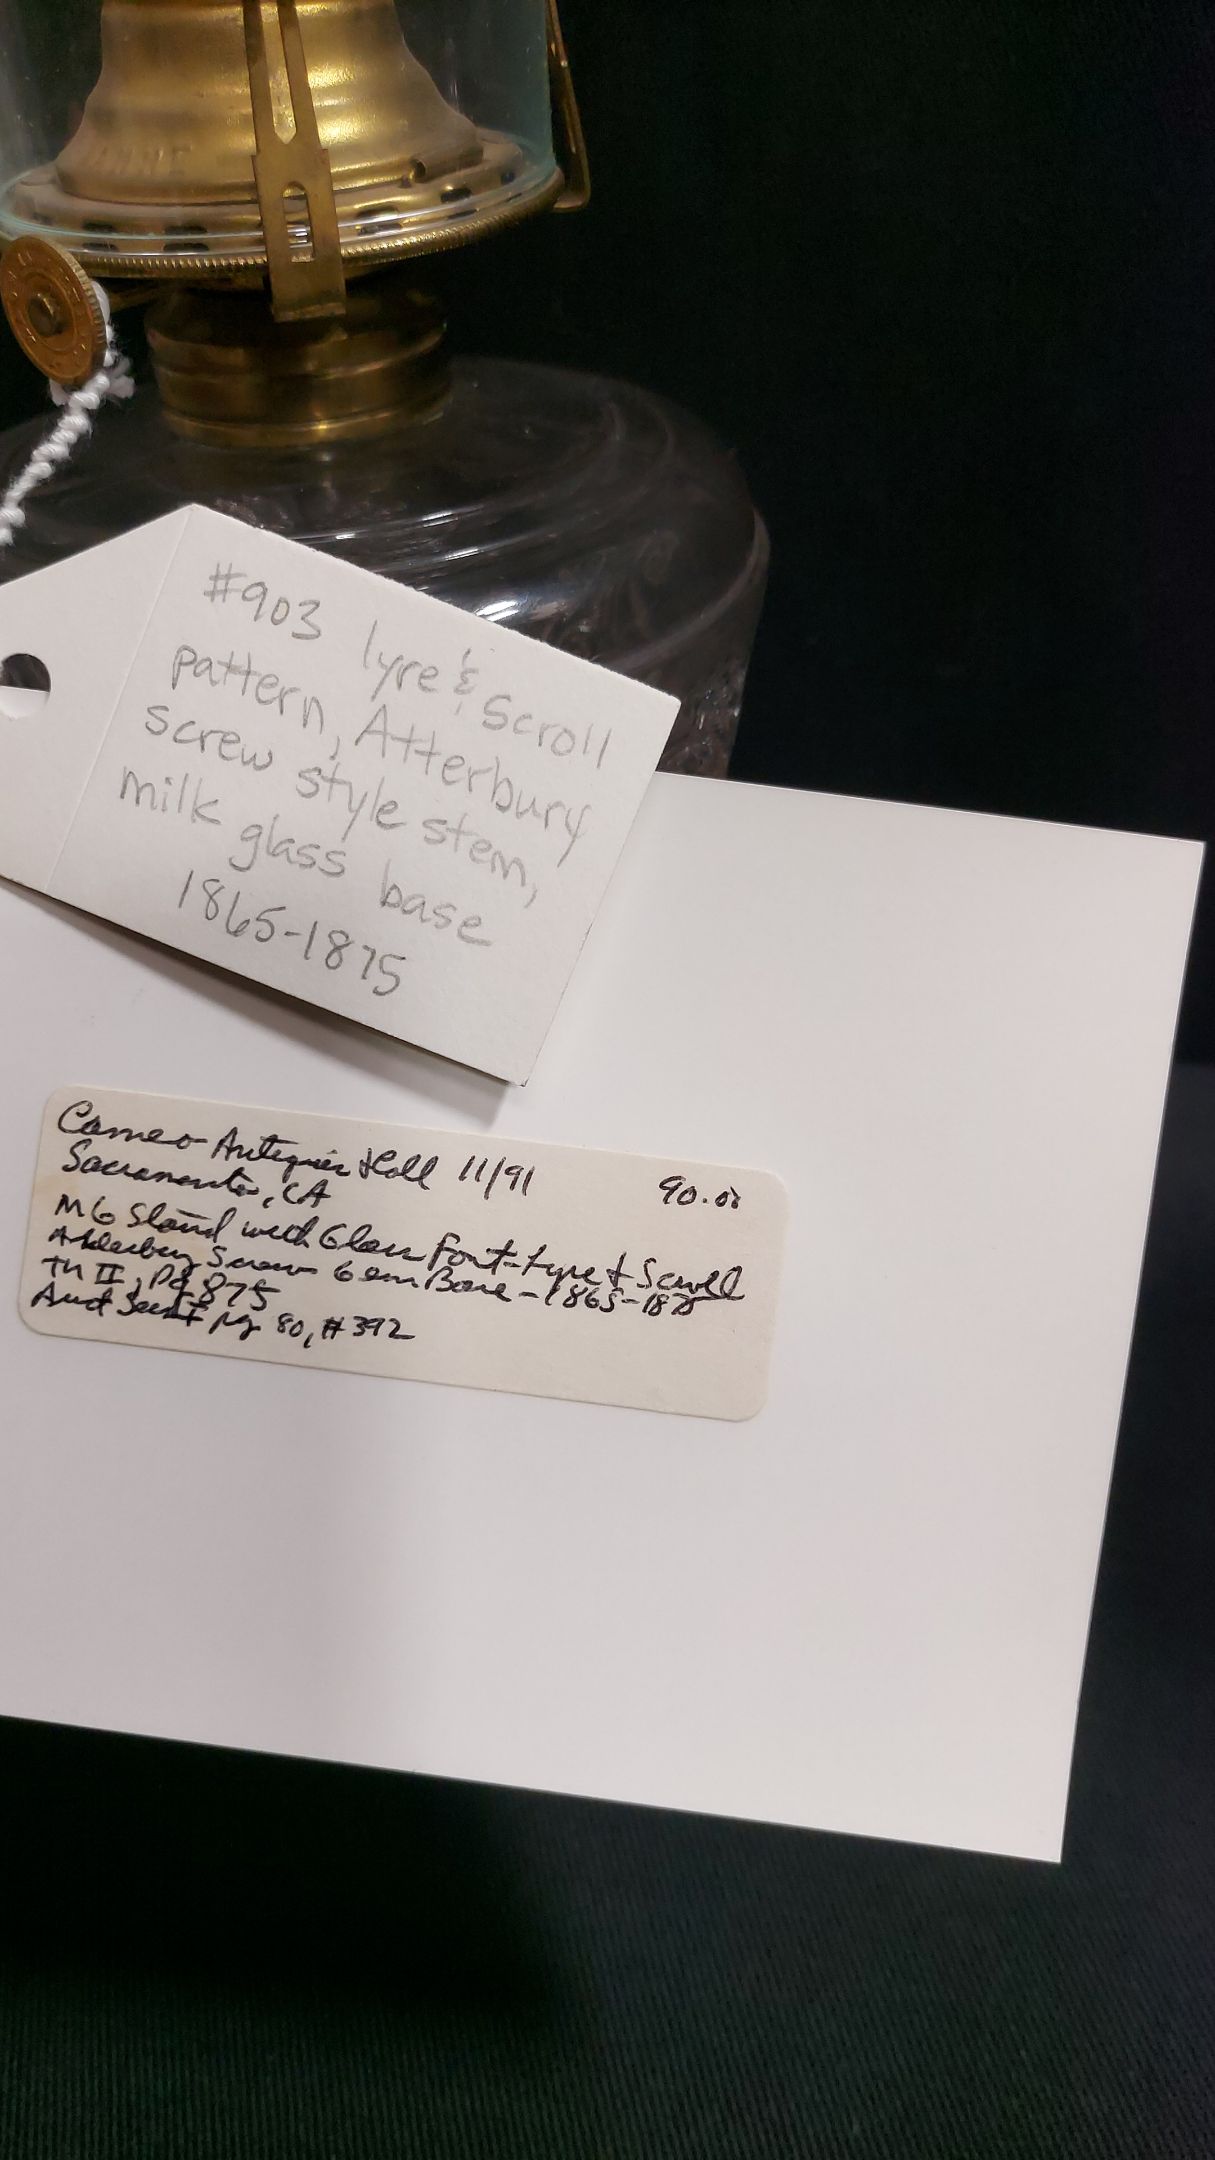 #903 lyre & scroll
pattern, Atterbury
screw style stem,
milk glass base
1865-1875
Cameo Antiques Hall 11/91 90.00
Sacramento, CA
MG Stand with Glass Font-Lyre & Scroll
Atterbury Screw Base - 1865-1875
Th II, pg 875
pg 80, #392